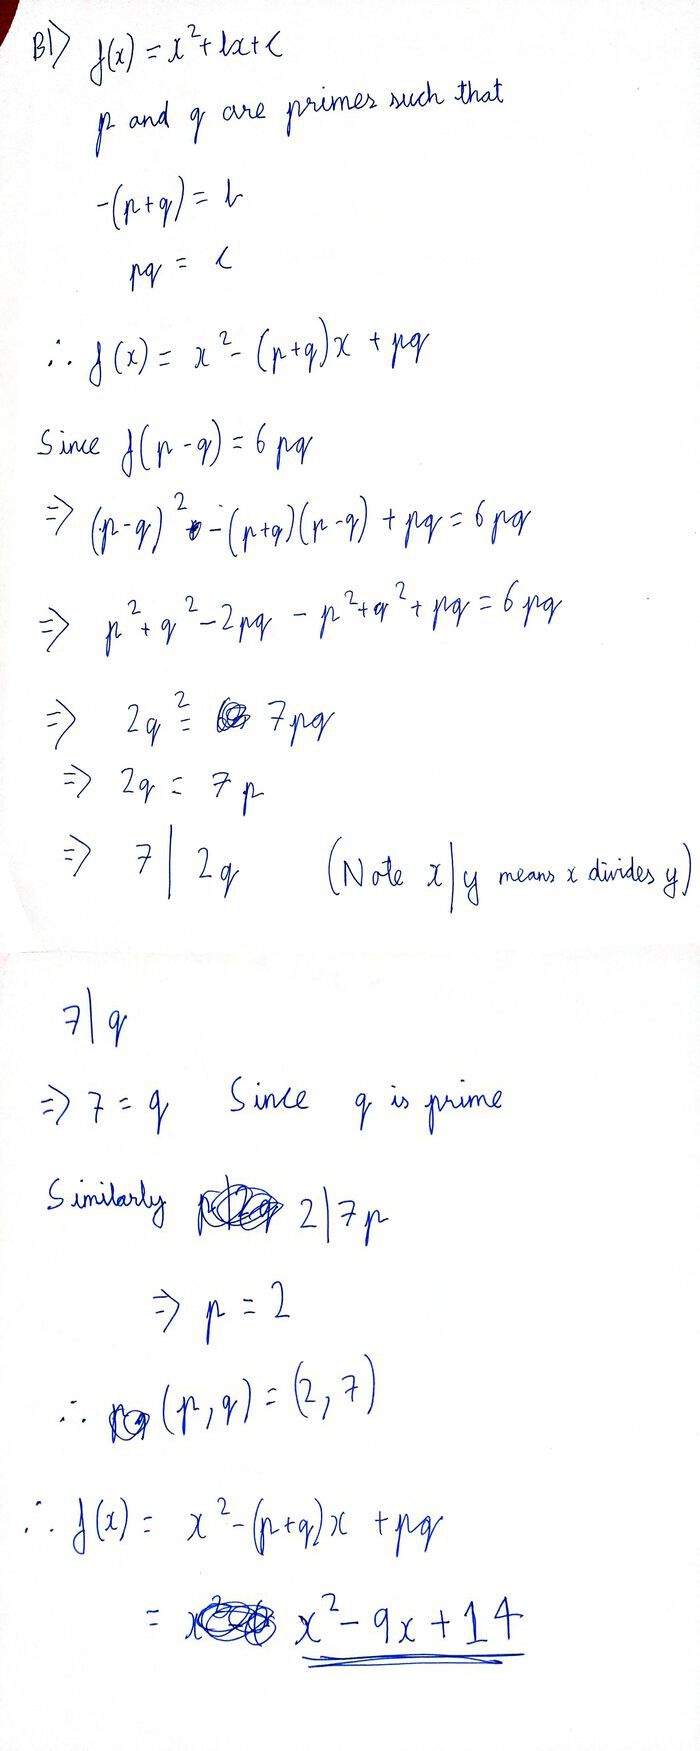 B1) f(x) = x² + bx + c
p and q are primes such that
-(p+q) = b
pq = c
∴ f(x) = x² - (p+q)x + pq
Since f(p-q) = 6pq
⇒ (p-q)² - (p+q)(p-q) + pq = 6pq
⇒ p² + q² - 2pq - p² + q² + pq = 6pq
⇒ 2q² = 7pq
⇒ 2q = 7p
⇒ 7 | 2q (Note x|y means x divides y)
7 | q
⇒ 7 = q Since q is prime
Similarly 2 | 7p
⇒ p = 2
∴ (p, q) = (2, 7)
∴ f(x) = x² - (p+q)x + pq
= x² - 9x + 14